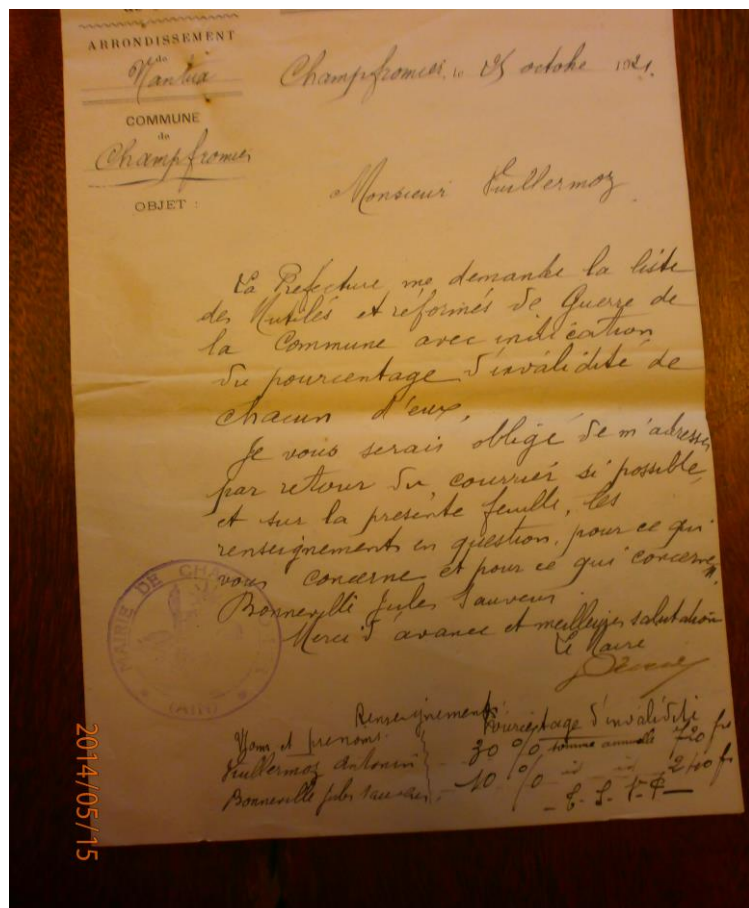 ARRONDISSEMENT
de
Nantua
Champfromier, le 25 octobre 1921.
COMMUNE
de
Champfromier
OBJET :
Monsieur Vuillermoz
La Préfecture me demande la liste
des Mutilés et réformés de Guerre de
la Commune avec indication
du pourcentage d'invalidité de
chacun d'eux.
Je vous serais obligé de m'adresser
par retour du courrier si possible
et sur la présente feuille, les
renseignements en question, pour ce qui
vous concerne et pour ce qui concerne
Bonneville Jules Sauveur.
Merci d'avance et meilleures salutations
Le Maire
MAIRIE DE
(AIN)
Renseignements
Noms et prénoms. Pourcentage d'invalidité
Vuillermoz Antonin 30 % somme annuelle 720 frs
Bonneville Jules Sauveur 10 % id id 240 frs
T. S. V. P
2014/05/15